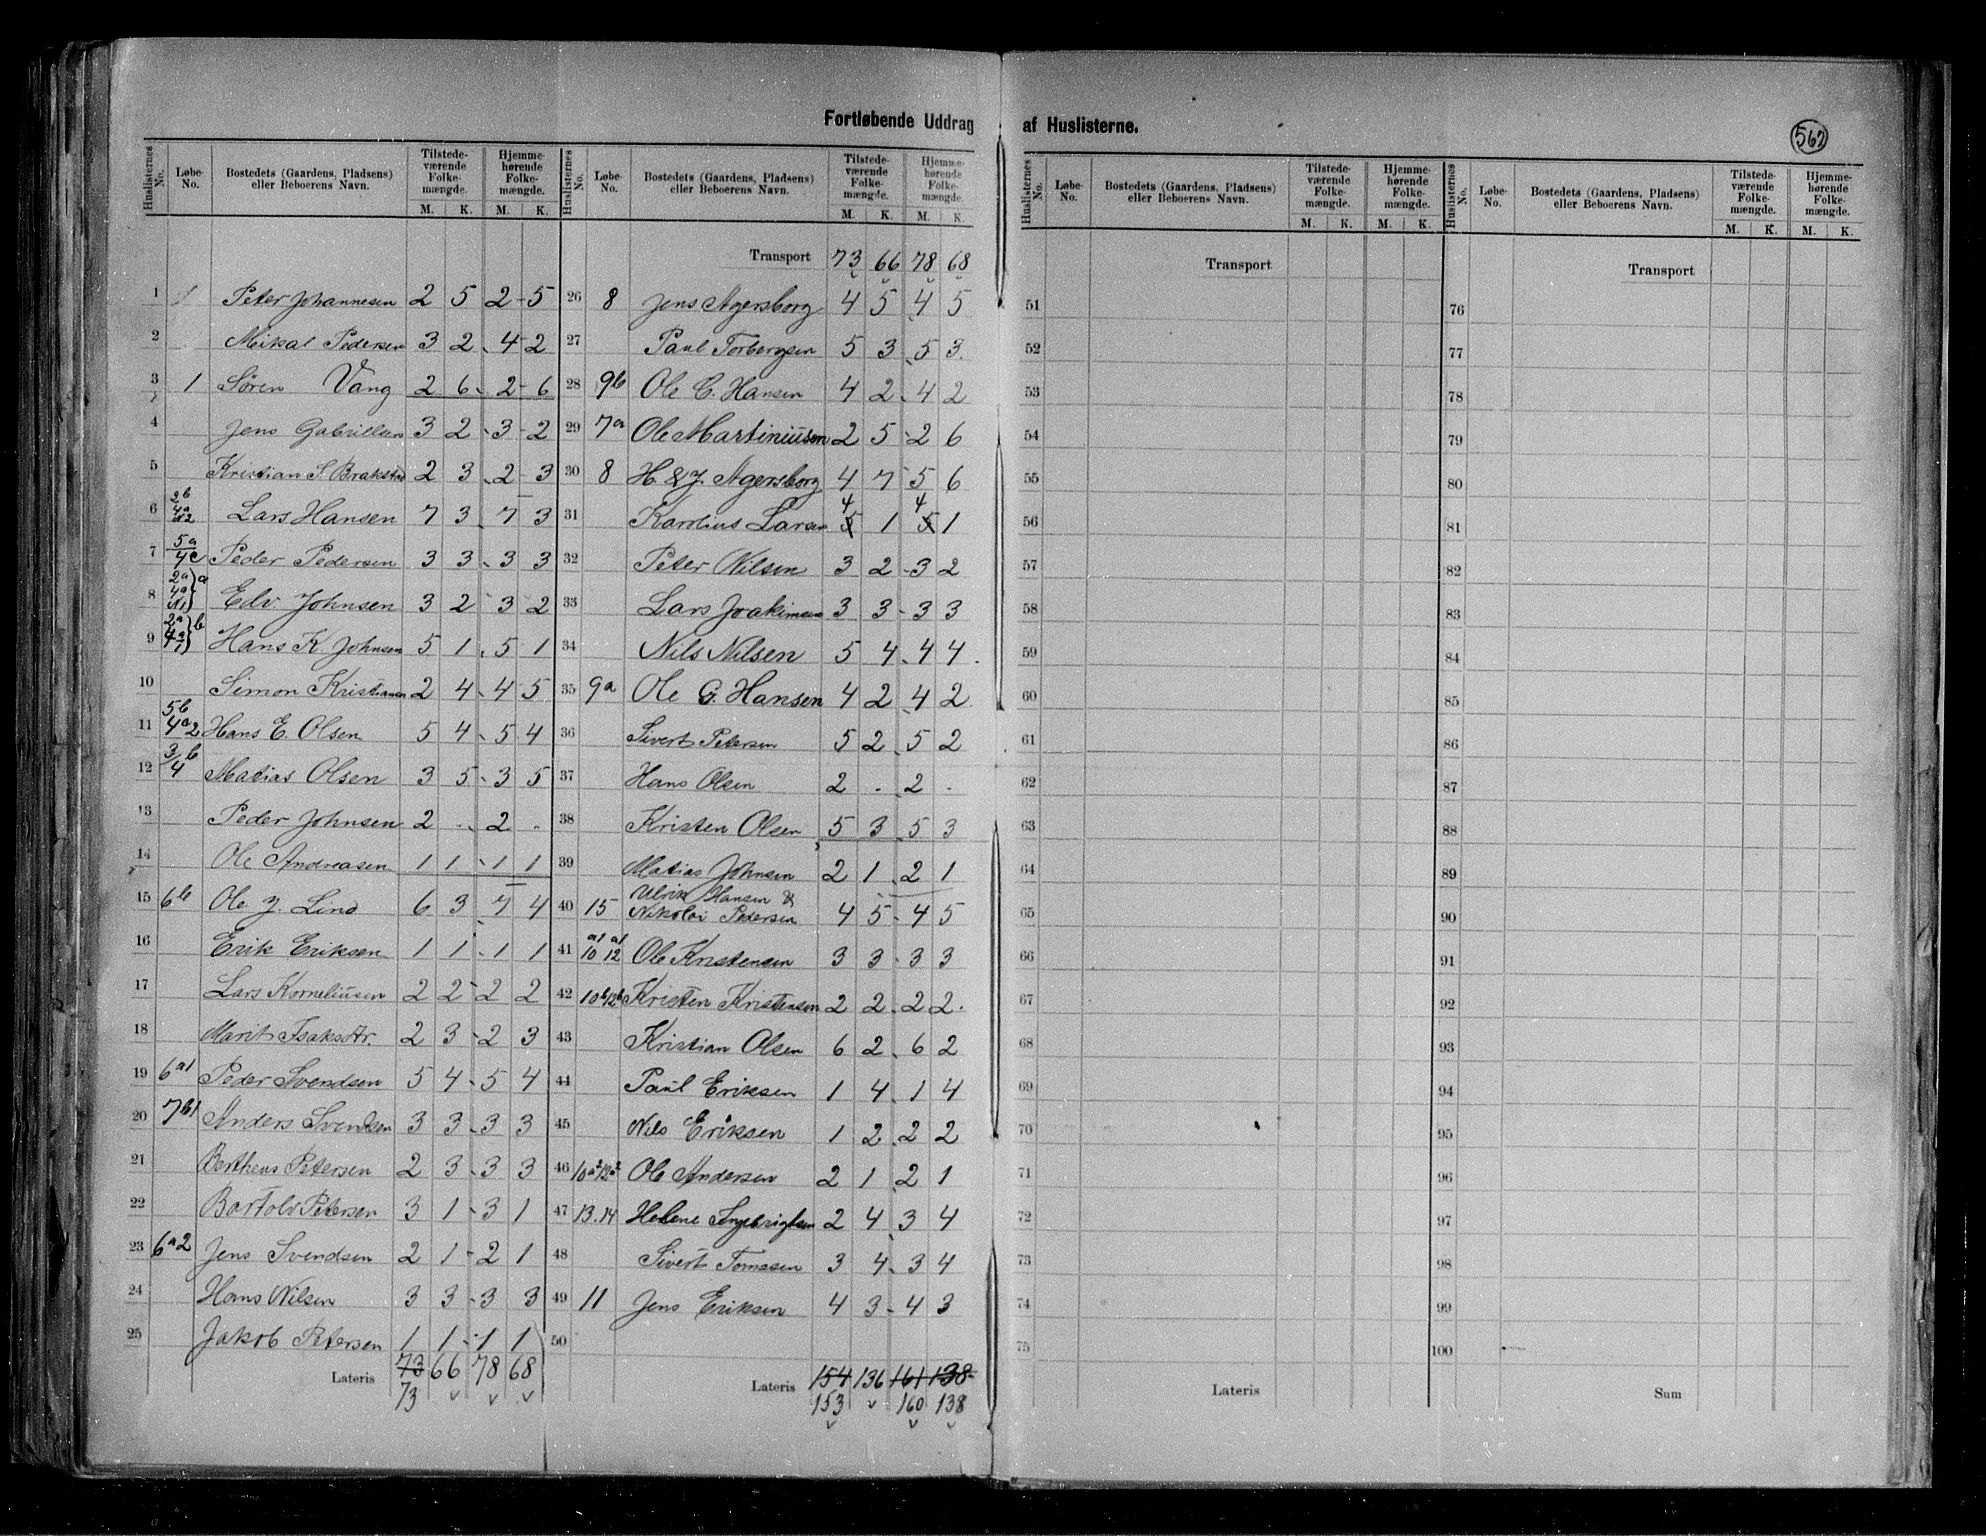 Fortløbende Uddrag af Huslisterne.
567
Huslisternes No. Løbe-No. Bostedets (Gaardens, Pladsens) eller Beboerens Navn. Tilstede-værende Folke-mængde. M. K. Hjemme-hørende Folke-mængde. M. K.
1 1 Peter Johannesen 2 5 2 5
2 Mikal Pedersen 3 2 4 2
3 1 Søren Vang 2 6 2 6
4 Jens Gabrillsen 3 2 3 2
5 Kristian S. Brakstad 2 3 2 3
6 2b 4a2 Lars Hansen 7 3 7 3
7 5a 4c Peder Pedersen 3 3 3 3
8 2a 4a1 a Edv. Johnsen 3 2 3 2
9 2a 4a1 b Hans K Johnsen 5 1 5 1
10 Simon Kristiansen 2 4 4 5
11 5b 4a2 Hans E. Olsen 5 4 5 4
12 3/4 b Matias Olsen 3 5 3 5
13 Peder Johnsen 2 . 2 .
14 Ole Andreasen 1 1 1 1
15 6b Ole J. Lind 6 3 7 4
16 Erik Eriksen 1 1 1 1
17 Lars Korneliusen 2 2 2 2
18 Marit Isaksdtr. 2 3 2 3
19 6a1 Peder Svendsen 5 4 5 4
20 7b1 Anders Svendsen 3 3 3 3
21 Bertheus Petersen 2 3 3 3
22 Bartolv Petersen 3 1 3 1
23 6a2 Jens Svendsen 2 1 2 1
24 Hans Nilsen 3 3 3 3
25 Jakob Petersen 1 1 1 1
Lateris 73 66 78 68
73
Huslisternes No. Løbe-No. Bostedets (Gaardens, Pladsens) eller Beboerens Navn. Tilstede-værende Folke-mængde. M. K. Hjemme-hørende Folke-mængde. M. K.
Transport 73 66 78 68
26 8 Jens Agersborg 4 5 4 5
27 Paul Torbergsen 5 3 5 3
28 9b Ole C. Hansen 4 2 4 2
29 7a Ole Martiniussen 2 5 2 6
30 8 H. & J. Agersborg 4 7 5 6
4 4
31 Karolius Larsen 5 1 5 1
32 Peter Nilsen 3 2 3 2
33 Lars Joakimsen 3 3 3 3
34 Nils Nilsen 5 4 4 4
35 9a Ole G. Hansen 4 2 4 2
36 Sivert Petersen 5 2 5 2
37 Hans Olsen 2 . 2 .
38 Kristen Olsen 5 3 5 3
39 Matias Johnsen 2 1 2 1
Ulrik Hansen &
40 15 Nikolai Pedersen 4 5 4 5
41 10a1 12a1 Ole Kristensen 3 3 3 3
42 10b 12b Kristen Kristensen 2 2 2 2
43 Kristian Olsen 6 2 6 2
44 Paul Eriksen 1 4 1 4
45 Nils Eriksen 1 2 2 2
46 10a2 12a2 Ole Andersen 2 1 2 1
47 13.14 Helene Ingebrigtsen 2 4 3 4
48 Sivert Tomasen 3 4 3 4
49 11 Jens Eriksen 4 3 4 3
50
Lateris 154 136 161 138
153 160 138
Huslisternes No. Løbe-No. Bostedets (Gaardens, Pladsens) eller Beboerens Navn. Tilstede-værende Folke-mængde. M. K. Hjemme-hørende Folke-mængde. M. K.
Transport
51
52
53
54
55
56
57
58
59
60
61
62
63
64
65
66
67
68
69
70
71
72
73
74
75
Lateris
Huslisternes No. Løbe-No. Bostedets (Gaardens, Pladsens) eller Beboerens Navn. Tilstede-værende Folke-mængde. M. K. Hjemme-hørende Folke-mængde. M. K.
Transport
76
77
78
79
80
81
82
83
84
85
86
87
88
89
90
91
92
93
94
95
96
97
98
99
100
Sum